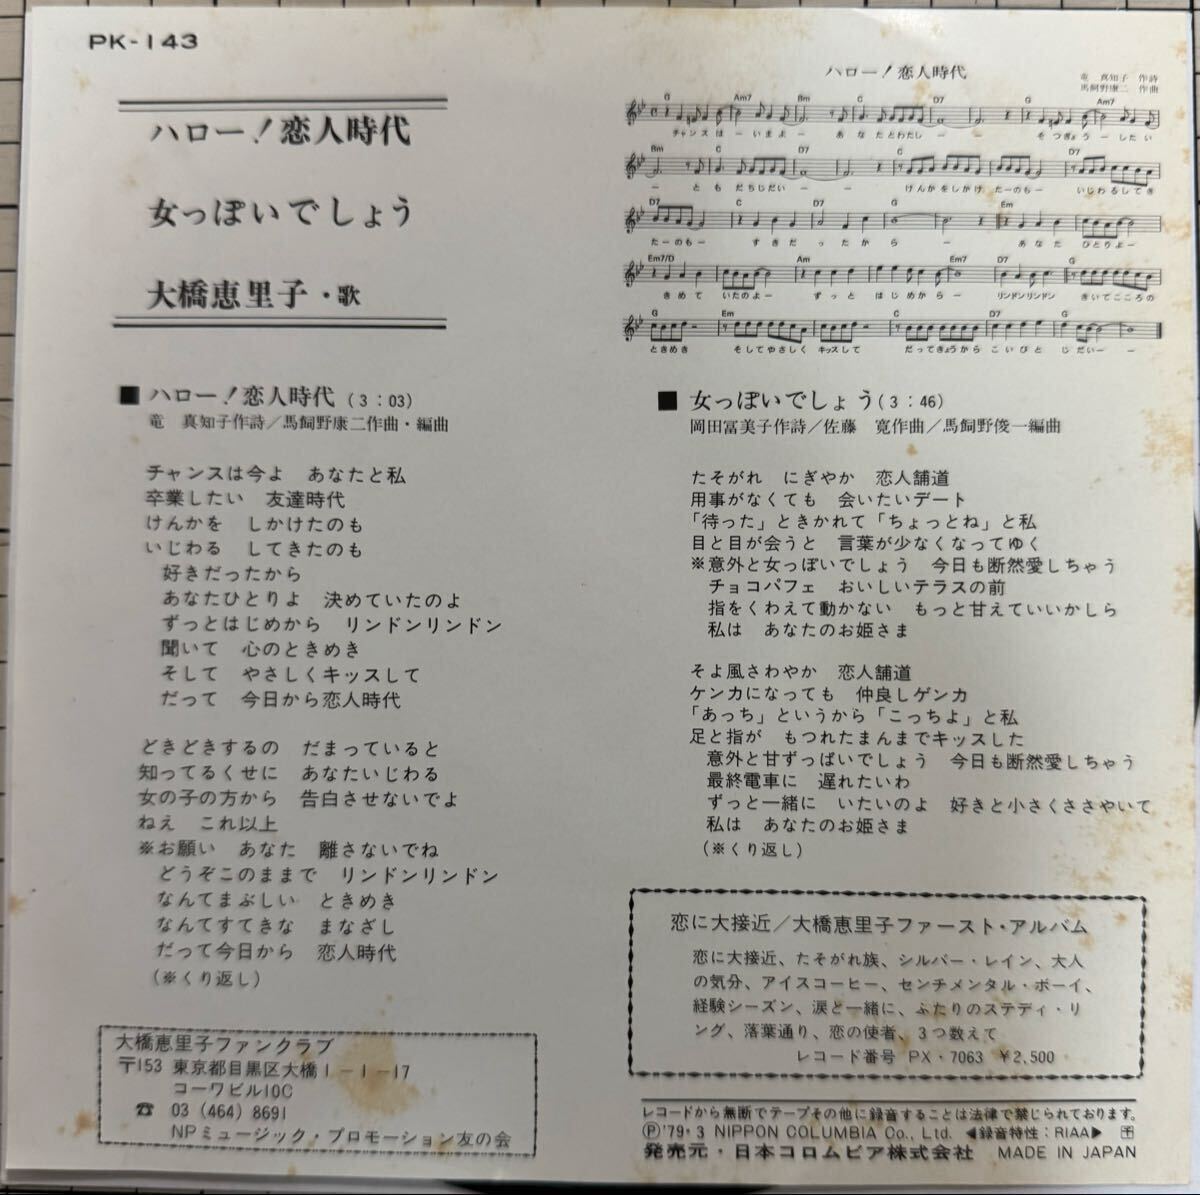 PK-143
ハロー！恋人時代
女っぽいでしょう
大橋恵里子・歌
ハロー！恋人時代
竜 真知子 作詩
馬飼野康二 作曲
G Am7 Bm C D7 G Am7
チャンスは ー いまよ ー あなたとわたし ー ー そつぎょう ー したい
Bm C D7 C D7
ー ともだちじだい ー ー けんかをしかけ たーのもー いじわるしてき
D7 C D7 G Em
たーのもー すきだったから ー あなた ひとりよー
Em7/D Am Em7 D7 G
きめて いたのよー ずっと はじめからー リンドンリンドン きいてこころの
G Em C D7 G
ときめき そしてやさしく キッスして だってきょうから こいびと じだいー ー
■ ハロー！恋人時代 (3：03)
竜 真知子作詩／馬飼野康二作曲・編曲
チャンスは今よ あなたと私
卒業したい 友達時代
けんかを しかけたのも
いじわる してきたのも
好きだったから
あなたひとりよ 決めていたのよ
ずっとはじめから リンドンリンドン
聞いて 心のときめき
そして やさしくキッスして
だって 今日から恋人時代
どきどきするの だまっていると
知ってるくせに あなたいじわる
女の子の方から 告白させないでよ
ねえ これ以上
※お願い あなた 離さないでね
どうぞこのままで リンドンリンドン
なんてまぶしい ときめき
なんてすてきな まなざし
だって今日から 恋人時代
(※くり返し)
大橋恵里子ファンクラブ
〒153 東京都目黒区大橋1-1-17
コーワビル10C
☎ 03 (464) 8691
NPミュージック・プロモーション友の会
■ 女っぽいでしょう (3：46)
岡田冨美子作詩／佐藤 寛作曲／馬飼野俊一編曲
たそがれ にぎやか 恋人舗道
用事がなくても 会いたいデート
「待った」ときかれて「ちょっとね」と私
目と目が会うと 言葉が少なくなってゆく
※意外と女っぽいでしょう 今日も断然愛しちゃう
チョコパフェ おいしいテラスの前
指をくわえて動かない もっと甘えていいかしら
私は あなたのお姫さま
そよ風さわやか 恋人舗道
ケンカになっても 仲良しゲンカ
「あっち」というから「こっちよ」と私
足と指が もつれたまんまでキッスした
意外と甘ずっぱいでしょう 今日も断然愛しちゃう
最終電車に 遅れたいわ
ずっと一緒に いたいのよ 好きと小さくささやいて
私は あなたのお姫さま
(※くり返し)
恋に大接近／大橋恵里子ファースト・アルバム
恋に大接近、たそがれ族、シルバー・レイン、大人
の気分、アイスコーヒー、センチメンタル・ボーイ、
経験シーズン、涙と一緒に、ふたりのステディ・リ
ング、落葉通り、恋の使者、3つ数えて
レコード番号 PX・7063 ¥2,500
レコードから無断でテープその他に録音することは法律で禁じられております。
Ⓟ'79・3 NIPPON COLUMBIA Co., Ltd. ◀録音特性：RIAA▶
発売元・日本コロムビア株式会社 MADE IN JAPAN